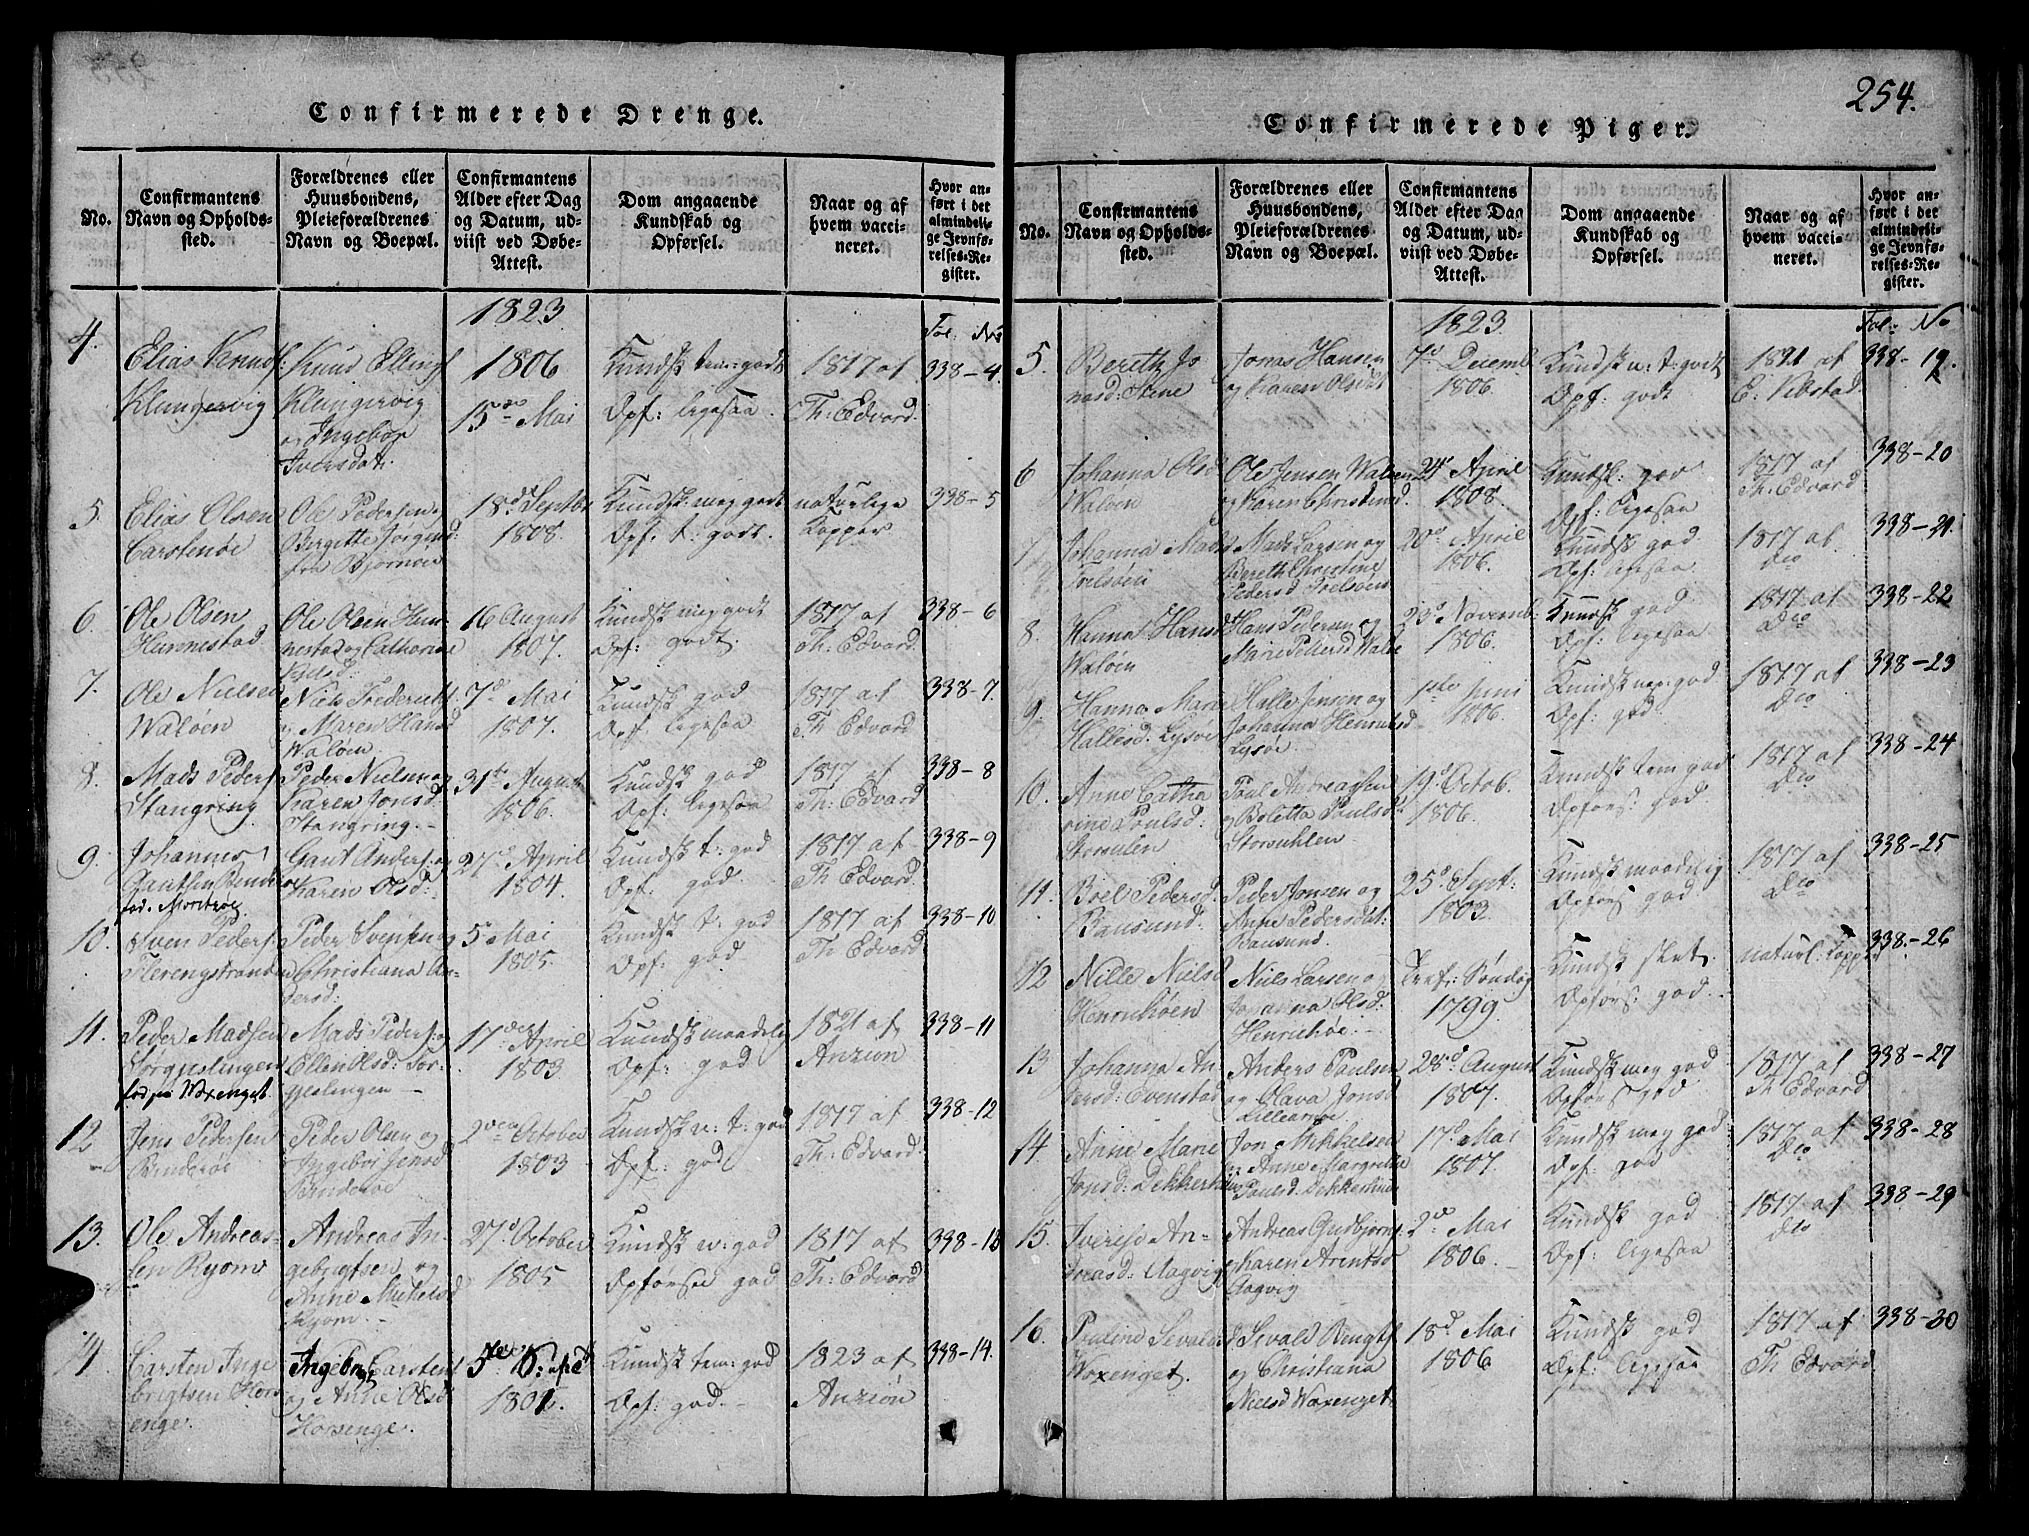 254.
Confirmerede Drenge.
No.
Confirmantens
Navn og Opholds-
sted.
Forældrenes eller
Huusbondens,
Pleieforældrenes
Navn og Boepæl.
Confirmantens
Alder efter Dag
og Datum, ud-
viist ved Døbe-
Attest.
Dom angaaende
Kundskab og
Opførsel.
Naar og af
hvem vacci-
neret.
Hvor an-
ført i det
almindeli-
ge Jevnfø-
relses-Re-
gister.
1823
Fol: No
4.
Elias
Klungervig
Knud Elling
Klungervig
og Ingebor
Iversdat.
1806
15de Mai
Kundsk tem: godt
Opf: ligesaa.
1817 af
Th: Edvard.
338-4
5.
Elias Olsen
Carstenøe
Ole Pedersen og
Bergette Jørgensd:
fra Bjørnøe
18de Septbr
1808.
Kundsk meg godt
Opf: t: godt.
naturlige
Kopper
338-5
6.
Ole Olsen
Hennestad
Ole Olsen Hen-
nestad og Catharine
16 August
1807.
Kundsk meg godt
Opf: godt.
1817 af
Th: Edvard
338-6
7.
Ole Nielsen
Waløen
Niels Frederiks
og Maren Hansd
Waløen
7de Mai
1807.
Kundsk god
Opf: ligesaa
1817 af
Th Edvard
338-7.
8.
Mads Peders
Stangring
Peder Nielsen og
Karen Jonsd.
Stangring.
31te August
1806.
Kundsk god
Opf: ligesaa
1817 af
Th: Edvard
338-8
9.
Johannes
Gautsen
Gaut Anders: og
Karen Olsd:
27de April
1804.
Kundsk t: god
Opf: god
1817 af
Th Edvard.
338-9
10.
Sven Peders:
Flerengstrand
Peder Svensen og
Christiana An-
dersd:
5 Mai
1805.
Kundsk t: god
Opf: god
1817 af
Th Edvard.
338-10
11.
Peder Madsen
Tørgjeslingen
fød paa Voxenget
Mads Peders: og
Ellen Olsd: Tør-
gjeslingen
17de April
1803
Kundsk maadelig
Opf: god
1821 af
Anzion
338-11
12
Jens Pedersen
Binderøe
Peder Olsen og
Ingebor Jensd
Binderøe
2den October
1803
Kundsk n: t: god
Opf: god
1817 af
Th: Edvard.
338-12
13.
Ole Andreas-
sen Ryom
Andreas In-
gebrigtsen og
Anne Michelsd
Ryom.
27d October
1805
Kundsk n: god
Opførsel god
1817 af
Th: Edvard
338-13
14
Carsten Inge
brigtsen Hors
enge.
Ingebr Carstens
og Anne Olsd
Horsenge.
Kundsk tem: god
Opf: god.
1823 af
Anzion
338-14.
Confirmerede Piger.
No.
Confirmantens
Navn og Opholds-
sted.
Forældrenes eller
Huusbondens,
Pleieforældrenes
Navn og Boepæl.
Confirmantens
Alder efter Dag
og Datum, ud-
viist ved Døbe-
Attest.
Dom angaaende
Kundskab og
Opførsel.
Naar og af
hvem vacci-
neret.
Hvor an-
ført i det
almindeli-
ge Jevnfø-
relses-Re-
gister.
1823.
Fol: No
5.
Bereth Jo
nasd: Stene
Jonas Hansen
og Karen Olsdt
7d Decemb
1806.
Kundsk n: t: godt
Opf: godt
1821 af
E. Vebstad
338-19.
6
Johanna Olsd
Waløen
Ole Jensen Waløen
og Karen Christensd.
24 April
1808.
Kundsk: god
Opf: ligesaa
1817 af
Th Edvard
338-20
7
Johanna Mads
Mads Larsen og
Bereth Christine
Pedersd
20de April
1806.
Kundsk god
Opf: ligesaa
1817 af
Do
338-21.
8.
Hanna Hansd
Waløen
Hans Pedersen og
Marie Pedersd Waløe
23d Novemb:
1806.
Kundsk god
Opf: ligesaa
1817 af
Do
338-22
9
Hanna Marie
Hallesd: Lysøe
Halle Jensen og
Johanna Henriksd
Lysøe
1ste Juni
1806.
Kundsk meg: god
Opf: god
1817 af
Do
338-23
10.
Anne Catha
rine Poulsd:
Storsulen
Poul Andreassen
og Boletta Paulsd:
Storsuhlen
19d Octob.
1806.
Kundsk tem god
Opførs: god
1817 af
Do
338-24
11.
Boel Pedersd.
Bausund.
Peder Jonsen og
Anne Pedersdat:
Bausund.
25d Sept:
1803.
Kundsk maadelig
Opførs god
1817 af
Do
338-25
12
Nille Nielsd
Henrikøen
Niels Larsen og
Johanna Olsd:
Henrikøe.
Søndag
1799
Kundsk slet
Opførs: god
naturl: Kopper
338.-26
13
Johanna An
dersd: Evenstad
Anders Paulsen
og Olava Jonsd
28de August
1807.
Kundsk meg god
Opførs god
1817 af
Th Edvard
338-27
14.
Anne Marie
Jonsd: Dekkerhuus
Jon Mikkelsen
og Anne Margrethe
Paulsd. Dekkerhuus
17d Mai
1807.
Kundsk meg god
Opf: god
1817 af
Do
338-28
15.
An-
dreasd: Aagvig
Andreas Gudbjørns:
og Karen Arentsd
Aagvig
2de Mai
1806.
Kundsk god
Opf: ligesaa
1817 af
Do
338-29
16.
Pauline Sevalds
Woxenget.
Sevald Bengts
og Christiana
Nielsd Woxenget
18d Mai
1806
Kundsk god
Opf: ligesaa
1817 af
Th Edvard
338-30